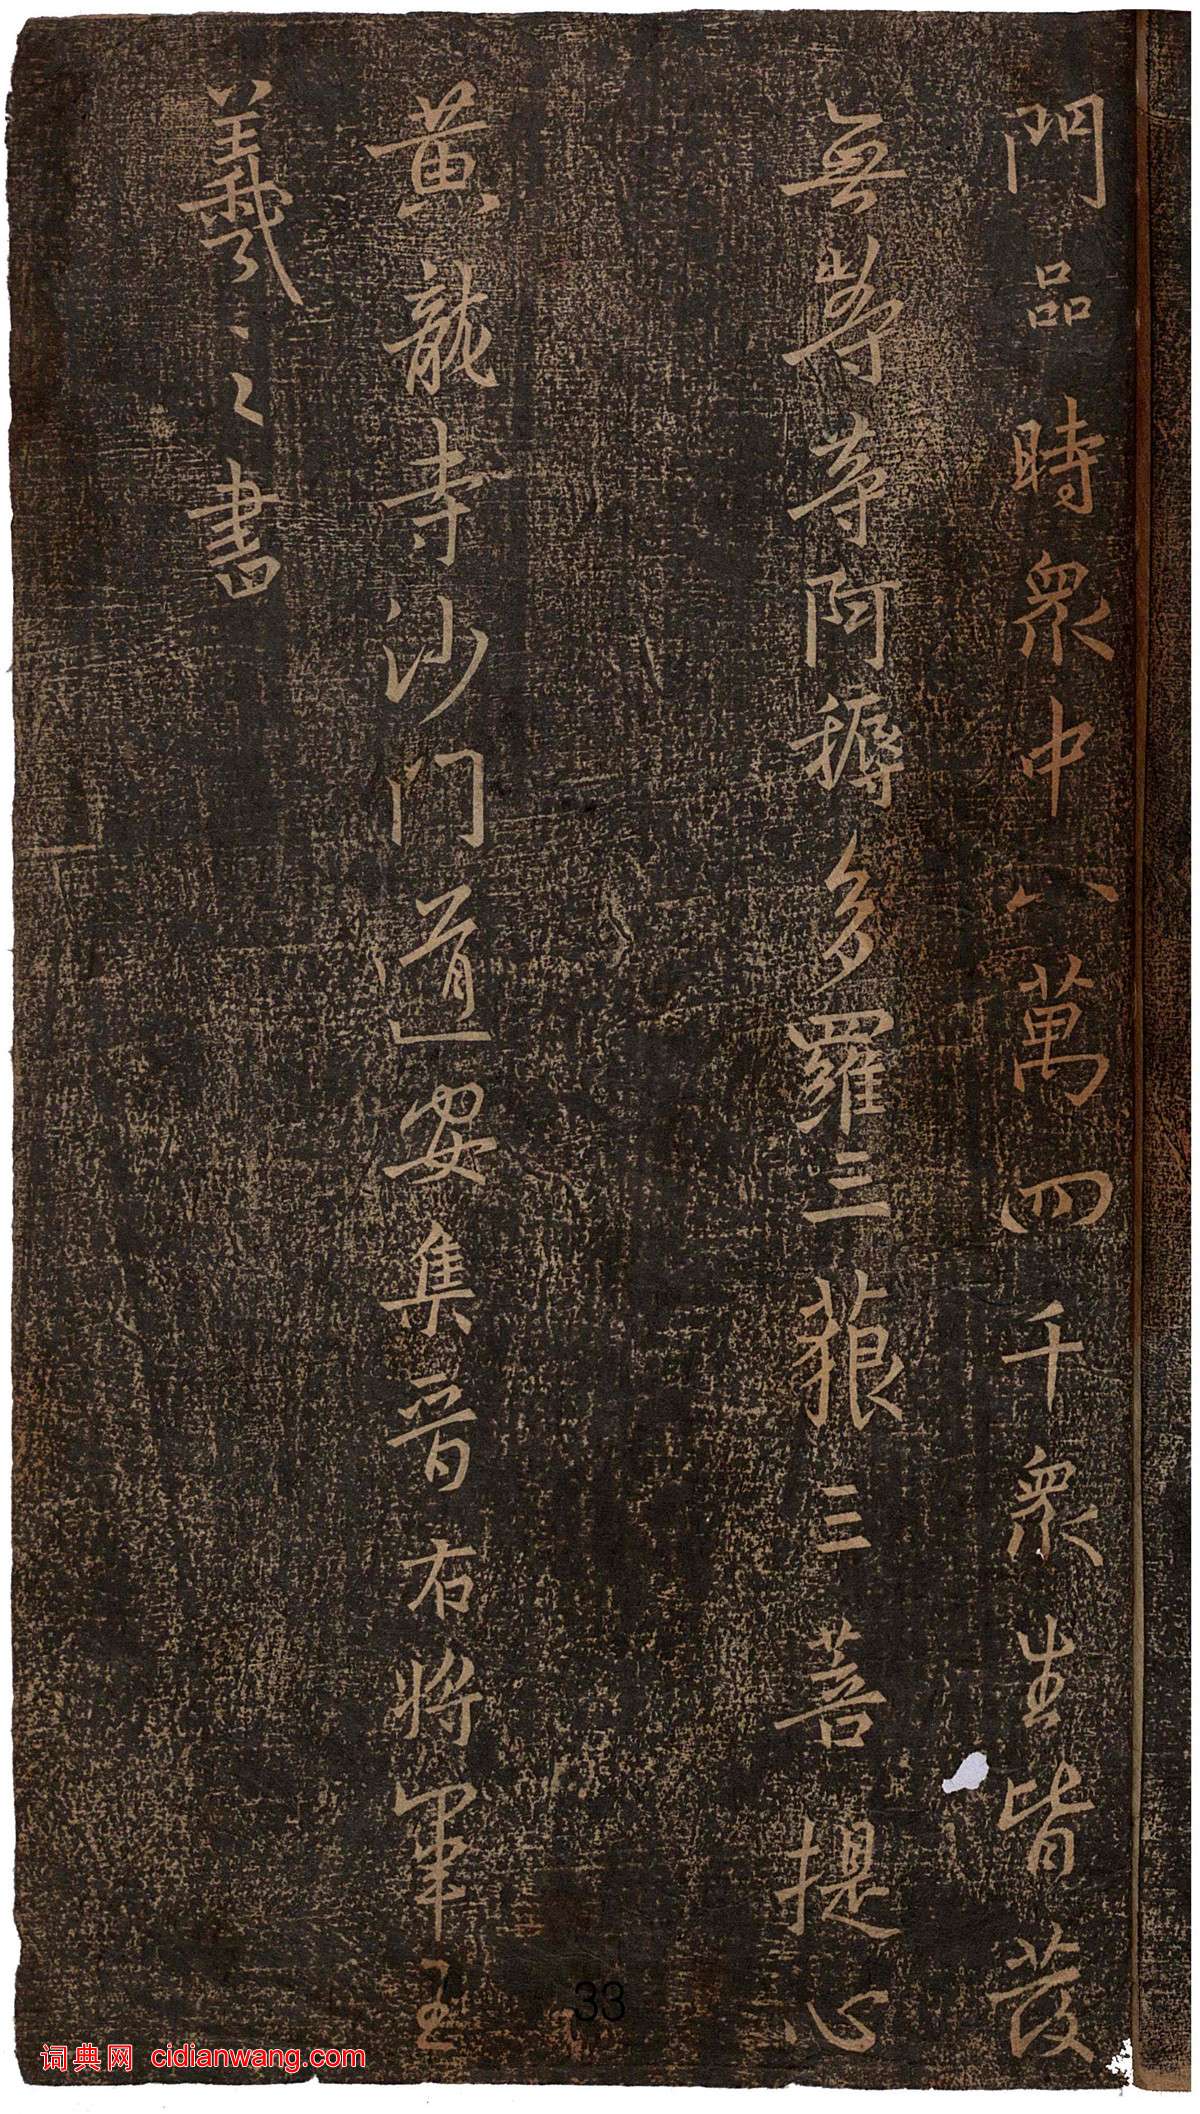 門品時眾中八萬四千眾生皆發
無等等阿耨多羅三藐三菩提心
黃龍寺沙門道安集晉右將軍王
羲之書
33
词典网 cidianwang.com